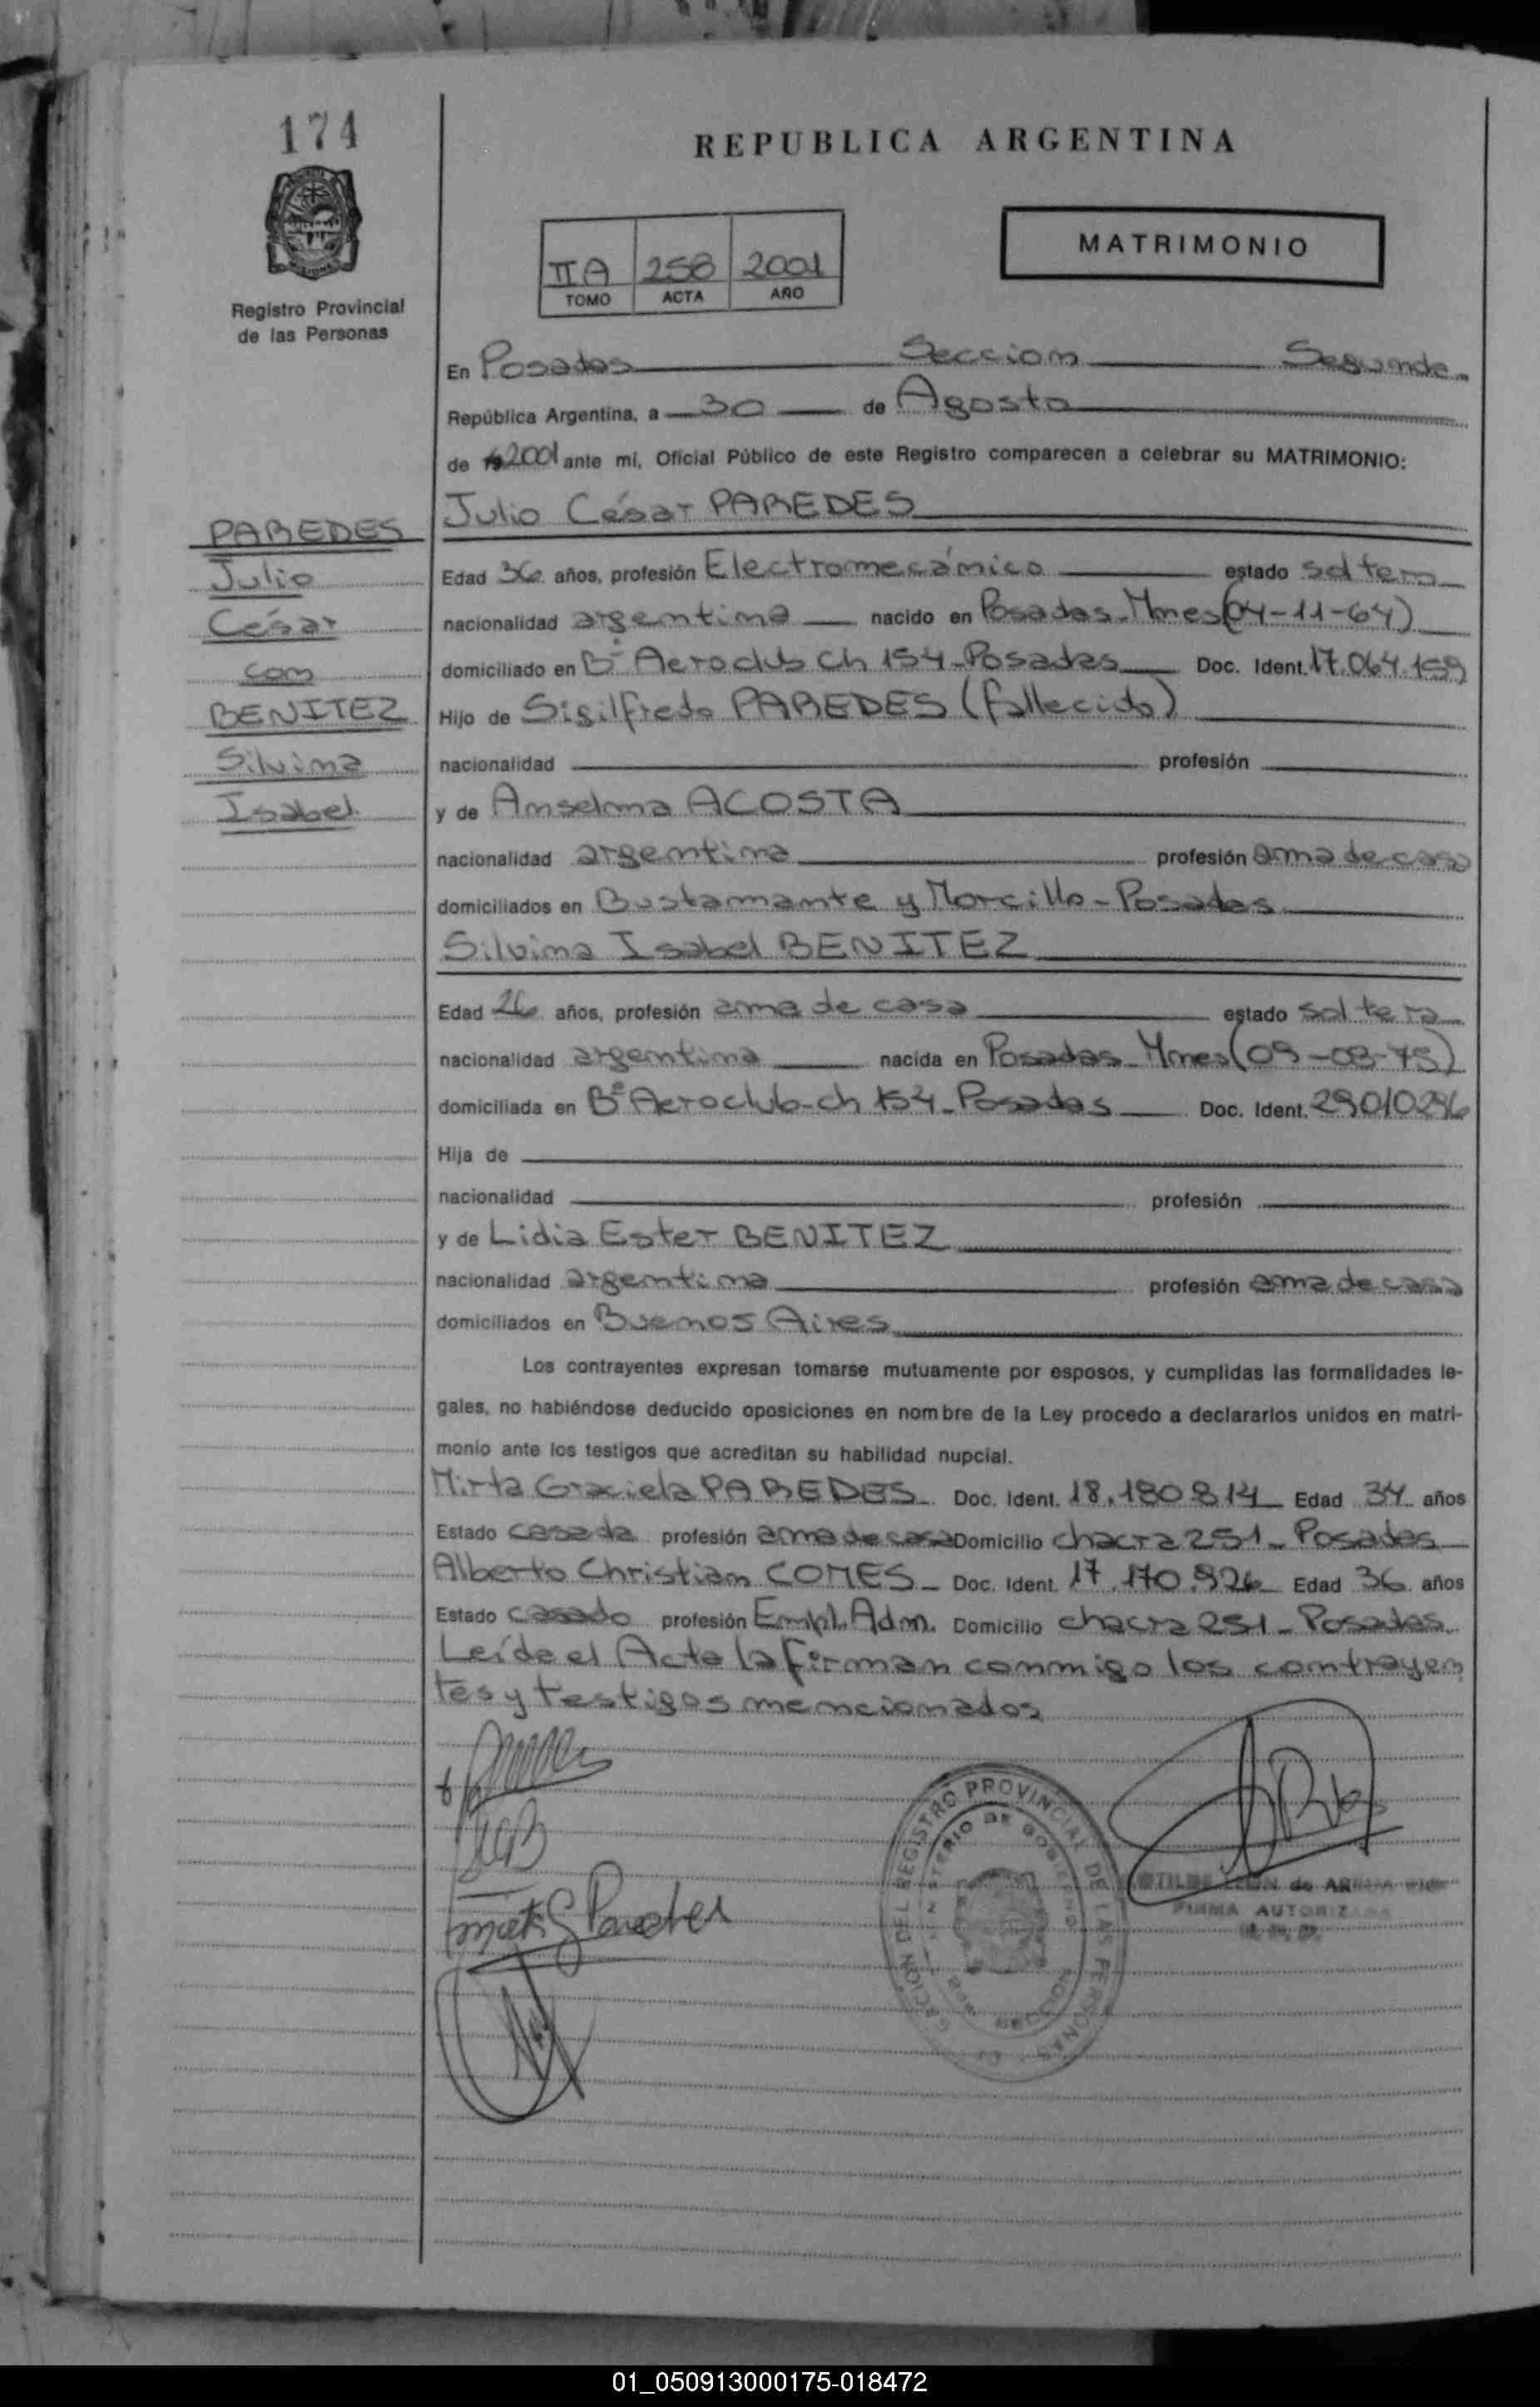 174
REPUBLICA ARGENTINA
MATRIMONIO
IIA 258 2001
TOMO ACTA AÑO
Registro Provincial
de las Personas
En Posadas Seccion Segunda
República Argentina, a 30 de Agosto
de 2001 ante mí, Oficial Público de este Registro comparecen a celebrar su MATRIMONIO:
Julio César PAREDES
PAREDES
Julio
César
con
BENITEZ
Silvina
Isabel
Edad 36 años, profesión Electromecánico estado soltero
nacionalidad argentina nacido en Posadas-Mnes(04-11-64)
domiciliado en Bº Aeroclub Ch 154-Posadas Doc. Ident. 17.064.159
Hijo de Sigilfredo PAREDES (fallecido)
nacionalidad profesión
y de Anselma ACOSTA
nacionalidad argentina profesión ama de casa
domiciliados en Bustamante y Morcillo-Posadas
Silvina Isabel BENITEZ
Edad 26 años, profesión ama de casa estado soltera
nacionalidad argentina nacida en Posadas-Mnes(09-08-75)
domiciliada en Bº Aeroclub-ch 154-Posadas Doc. Ident. 29010296
Hija de
nacionalidad profesión
y de Lidia Ester BENITEZ
nacionalidad argentina profesión ama de casa
domiciliados en Buenos Aires
Los contrayentes expresan tomarse mutuamente por esposos, y cumplidas las formalidades le-
gales, no habiéndose deducido oposiciones en nombre de la Ley procedo a declararlos unidos en matri-
monio ante los testigos que acreditan su habilidad nupcial.
Mirta Graciela PAREDES Doc. Ident. 18.180.814 Edad 34 años
Estado casada profesión ama de casa Domicilio chacra 251-Posadas
Alberto Christian COMES Doc. Ident. 17.170.926 Edad 36 años
Estado casado profesión Empl. Adm. Domicilio chacra 251-Posadas
Leída el Acta la firman conmigo los contrayen
tes y testigos mencionados
REGISTRO PROVINCIAL DE LAS PERSONAS
MINISTERIO DE GOBIERNO
FIRMA AUTORIZADA
01_050913000175-018472